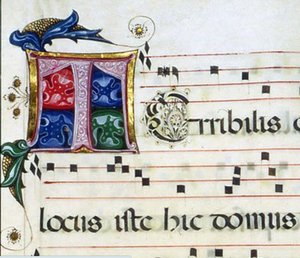 TErribilis e
locus iste hic domus